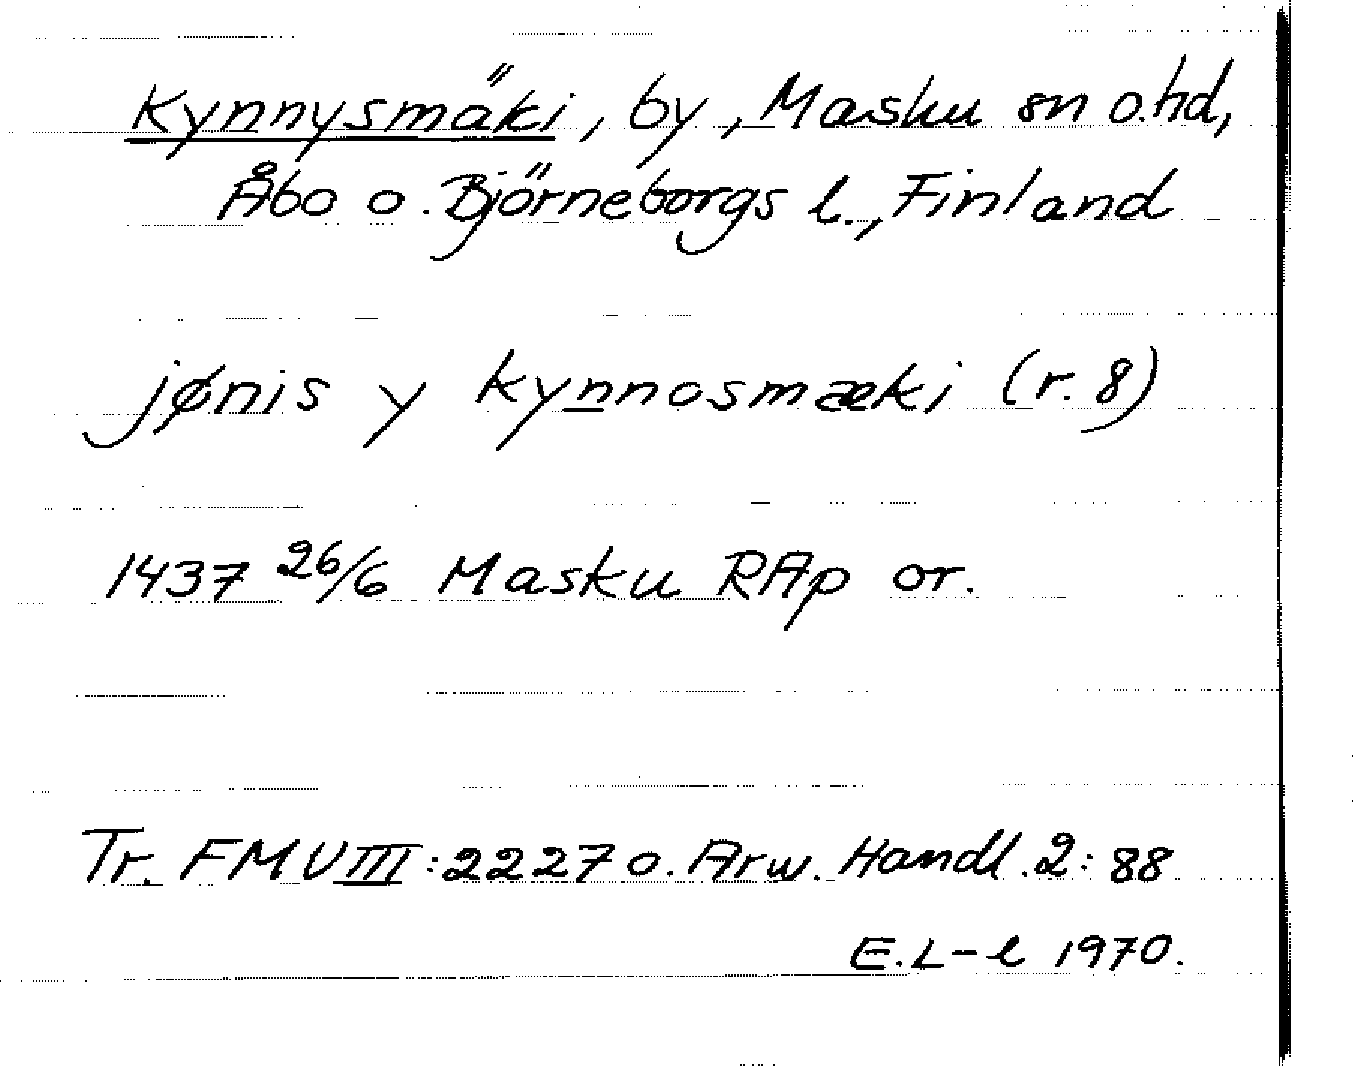 Kynnysmäki, by, Masku sn o.hd,
Åbo o. Björneborgs l., Finland
jønis y kynnosmæki (r. 8)
1437 26/6 Masku RAp or.
Tr. FMU III: 2227 o. Arw. Handl. 2: 88
E. L-l 1970.